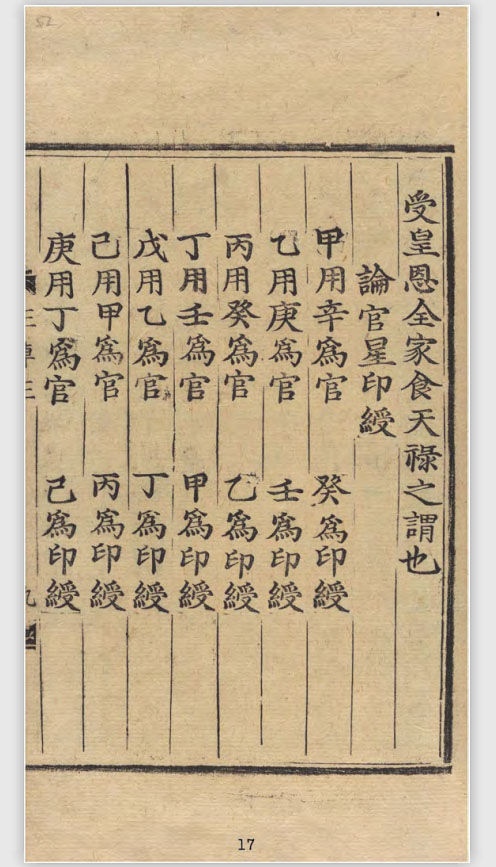 受皇恩全家食天祿之謂也
論官星印綬
甲用辛爲官 癸爲印綬
乙用庚爲官 壬爲印綬
丙用癸爲官 乙爲印綬
丁用壬爲官 甲爲印綬
戊用乙爲官 丁爲印綬
己用甲爲官 丙爲印綬
庚用丁爲官 己爲印綬
17